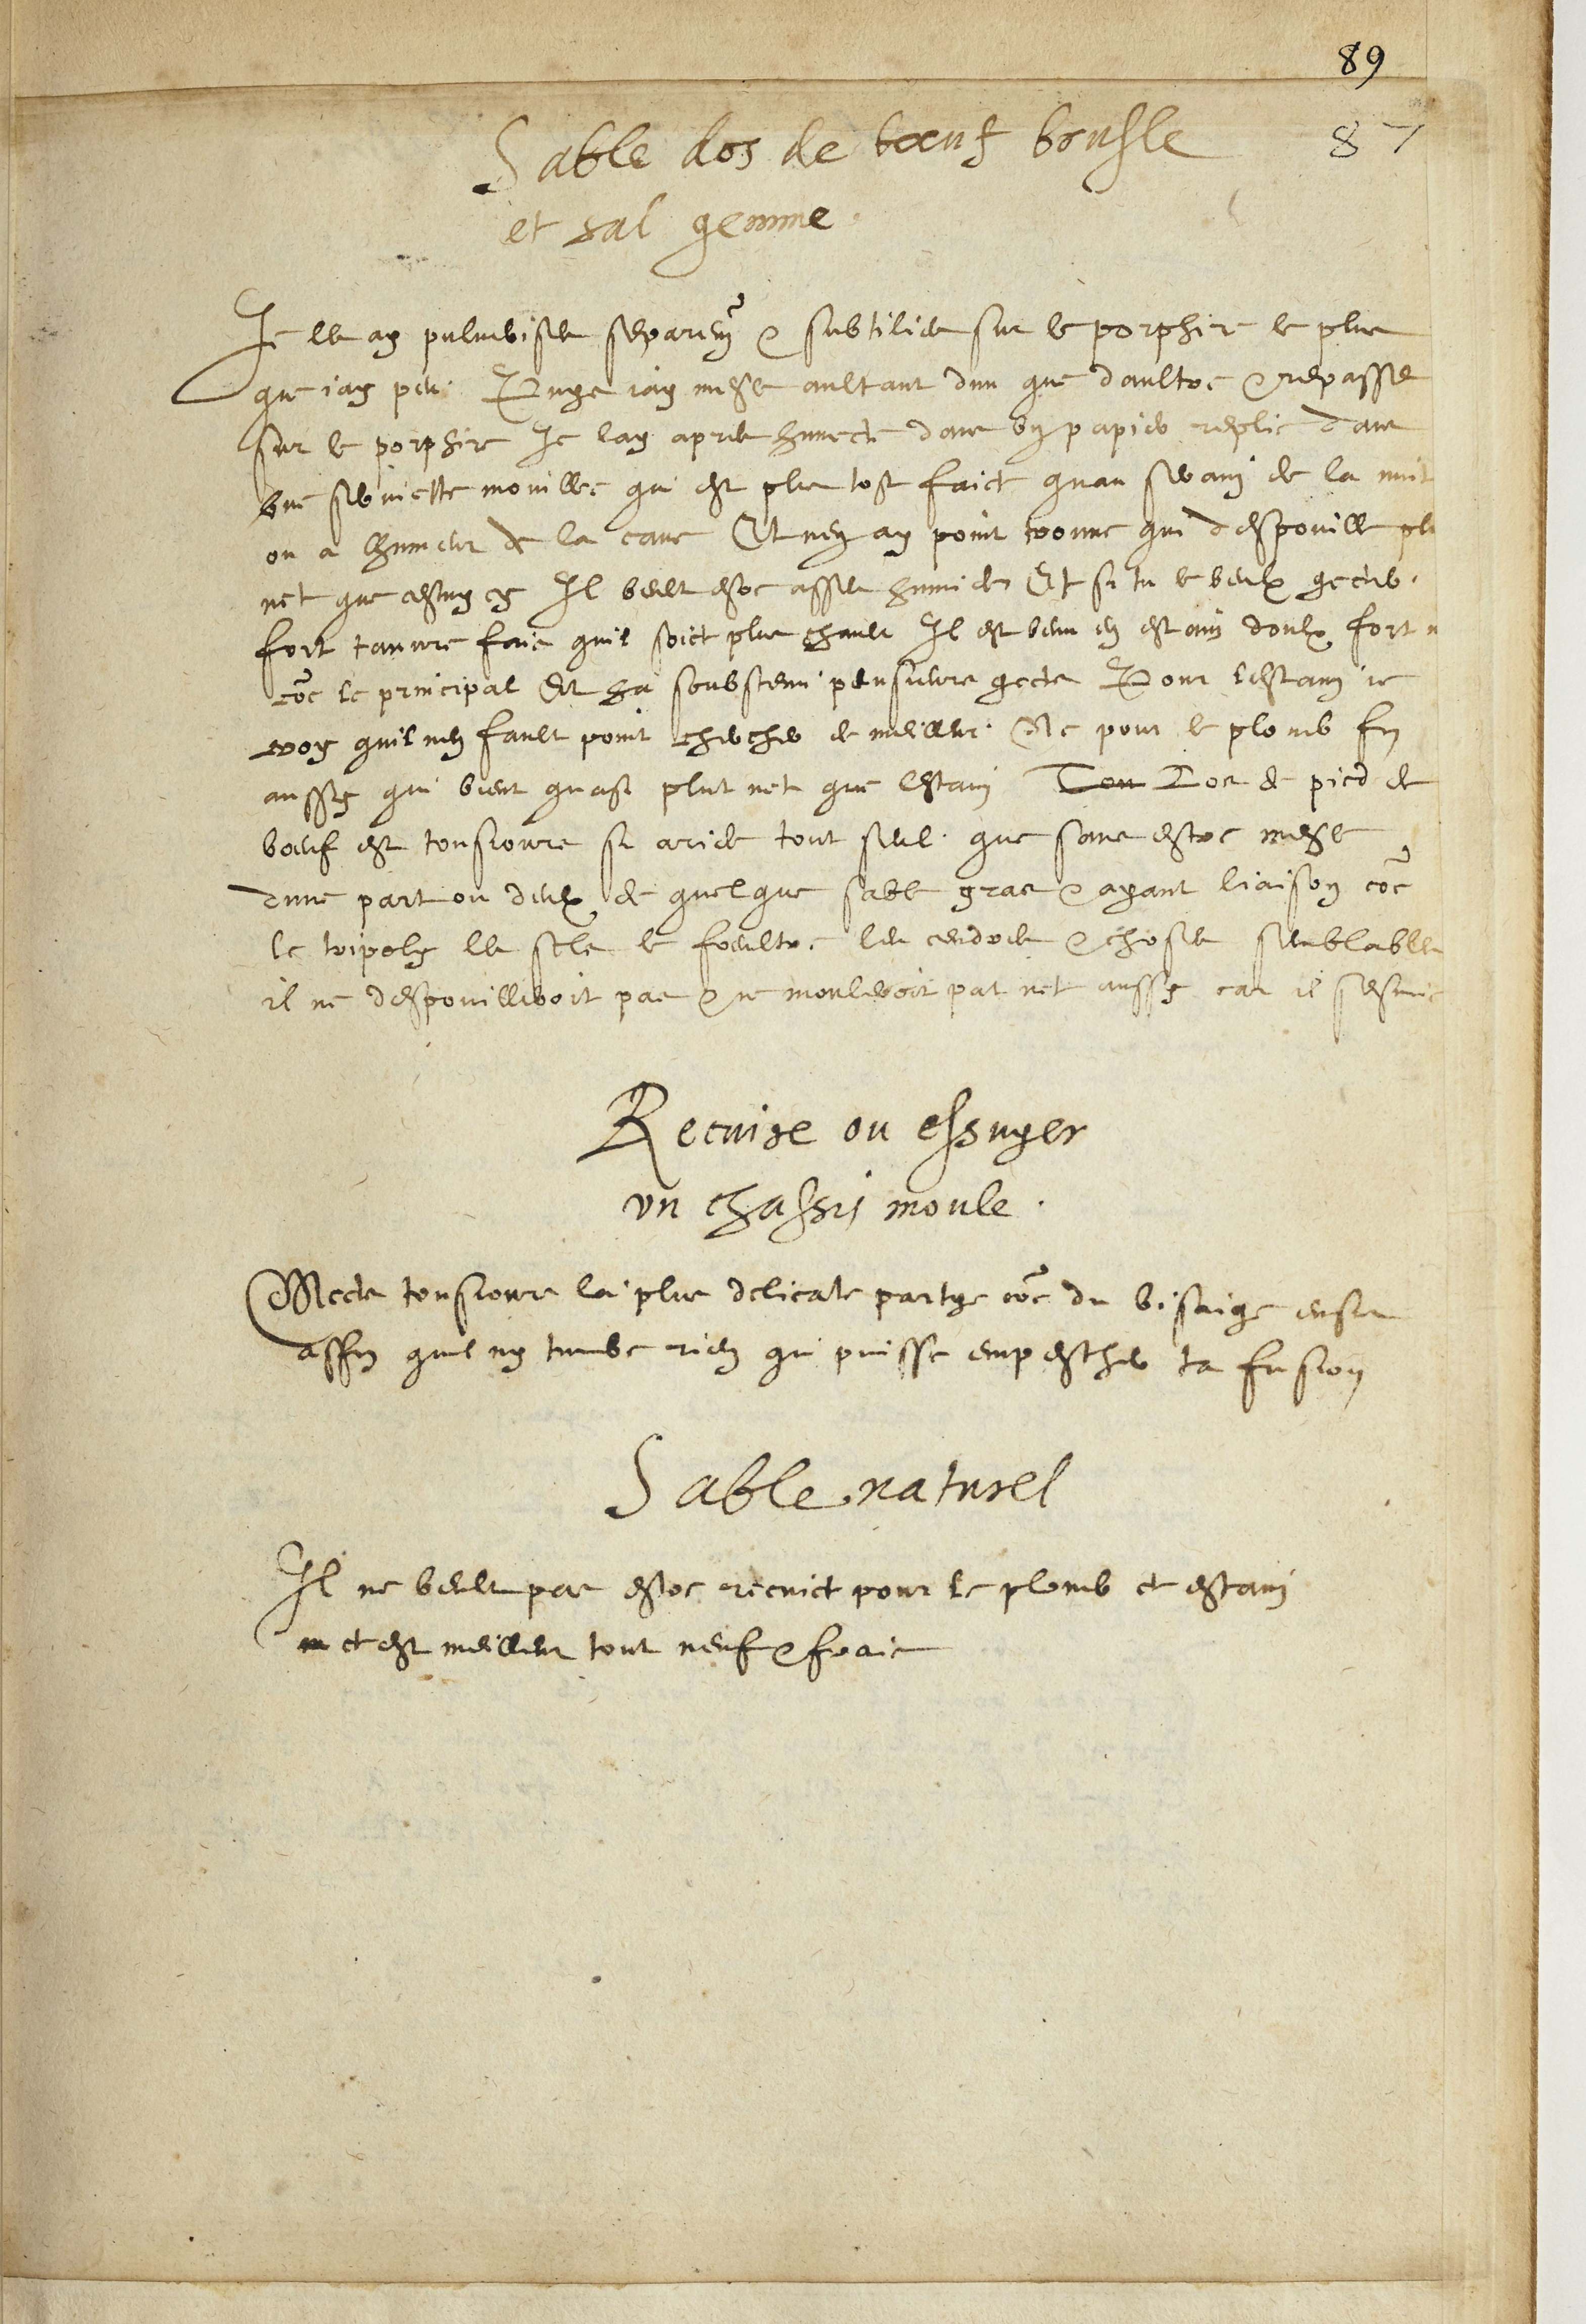 89
87
Sable dos de bœuf brusle
et sal gemme.
Je les ay pulverises separem̃ & subtilies sur le porphire le plus
que iay peu. Puys iay mesle aultant dun que daultre & repasse
sur le porphire Je lay apres humecte dans un papier replie dans
une serviette mouillee qui est plus tost faict quau serain de la nuit
ou a lhumeur de la cave Et nen ay point trouve qui despouille plu
net que cestuy cy Il veult estre asses humide Et si tu le veulx gecter
fort tanvre fais quil soict plus chault Il est venu en estain doulx fort n
coe le principal Et ha soubstenu plusieurs gects Pour lestain ie
croy quil nen fault point chercher de meilleur. Ne pour le plomb fin
aussy qui vient quasi plus net que lestain Tou Los de pied de
bœuf est tousiours si aride tout seul que sans estre mesle
dune part ou deux de quelque sable gras & ayant liaison coe
le tripoly les sels le foeultre les cendres & choses semblables
il ne despouilleroit pas & ne mouleroit pas net aussy car il sesmie
Recuire ou essuyer
un chassis moule.
Mects tousiours la plus delicate partye coe du visaige dessus
affin quil ny tumbe rien qui puisse empescher ta fusion
Sable naturel
Il ne veult pas estre recuict pour le plomb et estain
m et est meilleur tout neuf & frais